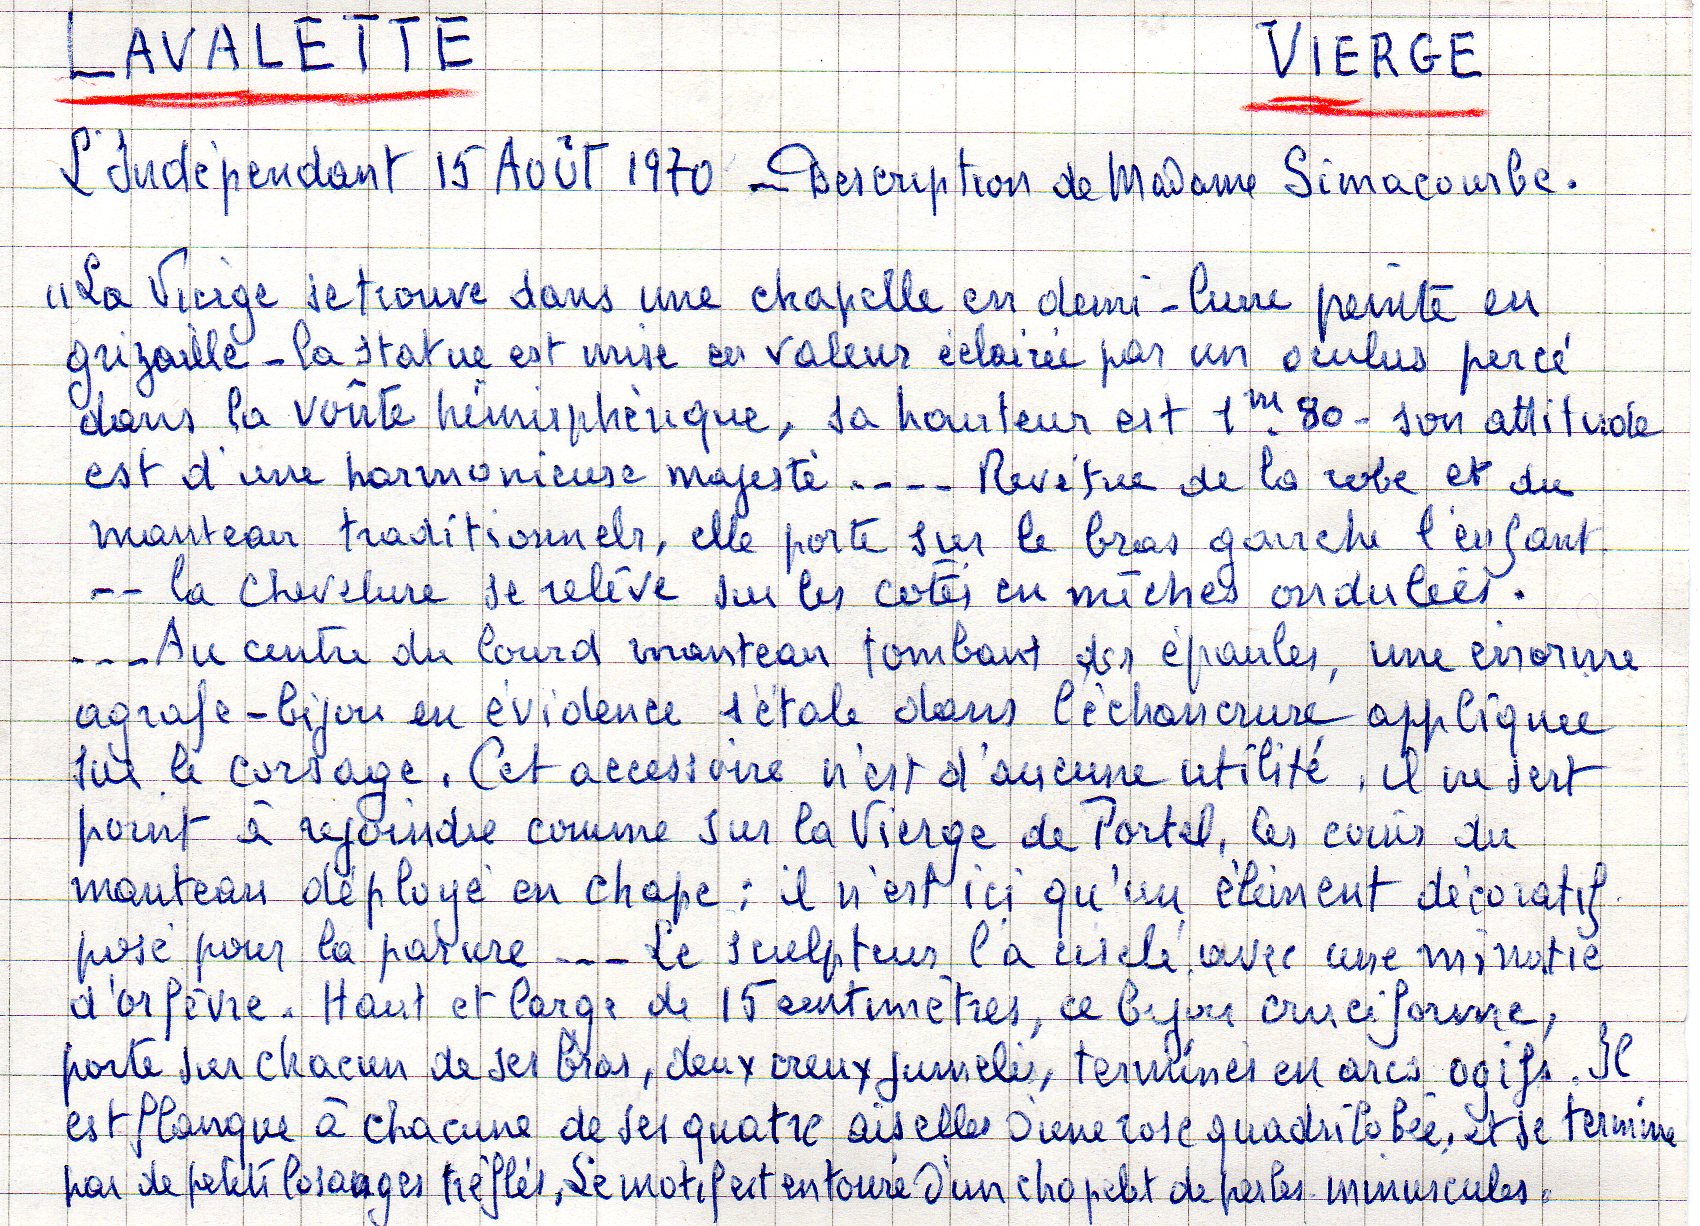 LAVALETTE VIERGE
L'Indépendant 15 Août 1970 - Description de Madame Simacourbe.
"La Vierge se trouve dans une chapelle en demi-lune peinte en
grizaille - la statue est mise en valeur éclairée par un oculus percé
dans la voûte hémisphérique, sa hauteur est 1m.80 - son attitude
est d'une harmonieuse majesté .---- Revêtue de la robe et du
manteau traditionnels, elle porte sur le bras gauche l'enfant.
-- la chevelure se relève sur les cotés en mèches ondulées.
---Au centre du lourd manteau tombant des épaules, une énorme
agrafe-bijou en évidence s'étale dans l'échancrure appliquée
sur le corsage. Cet accessoire n'est d'aucune utilité, il ne sert
point à rejoindre comme sur la Vierge de Portel, les coins du
manteau déployé en chape : il n'est ici qu'un élément décoratif
posé pour la parure --- Le sculpteur l'a ciselé avec une minutie
d'orfèvre. Haut et large de 15 centimètres, ce bijou cruciforme,
porte sur chacun de ses bras, deux creux jumelés, terminés en arcs ogifs. Il
est flanqué à chacune de ses quatre aiselles d'une rose quadrilobée, et se termine
par de petits losanges tréflés, Le motif est entouré d'un chapelet de perles minuscules.